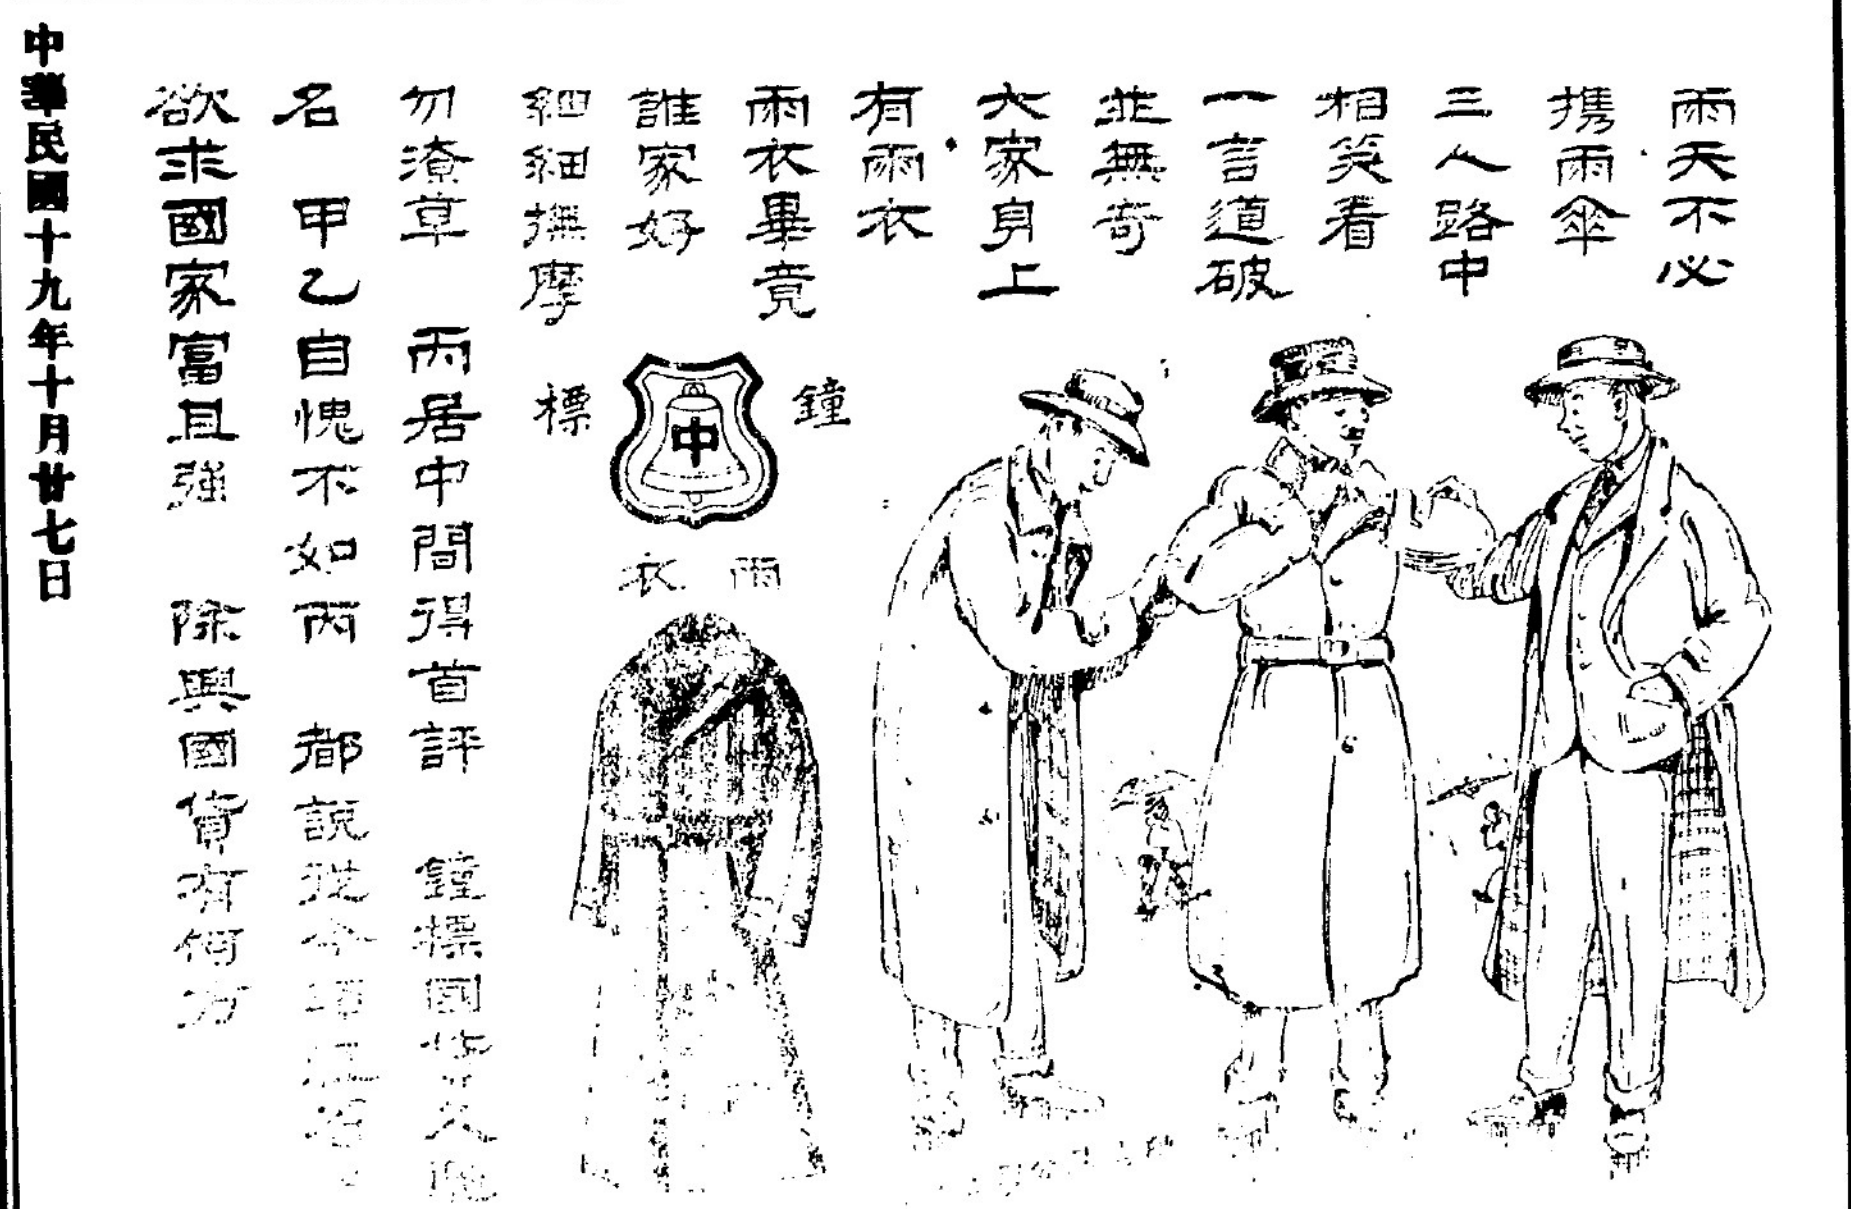 雨天不必
携雨傘
三人路中
相笑看
一言道破
並無奇
大家身上
有雨衣
雨衣畢竟
誰家好
細細撫摩
勿潦草 丙居中間得首評 鐘標國貨久馳
名 甲乙自愧不如丙 都說從今
欲求國家富且強 除興國貨有何方
鐘標
中
雨衣
中華民國十九年十月廿七日